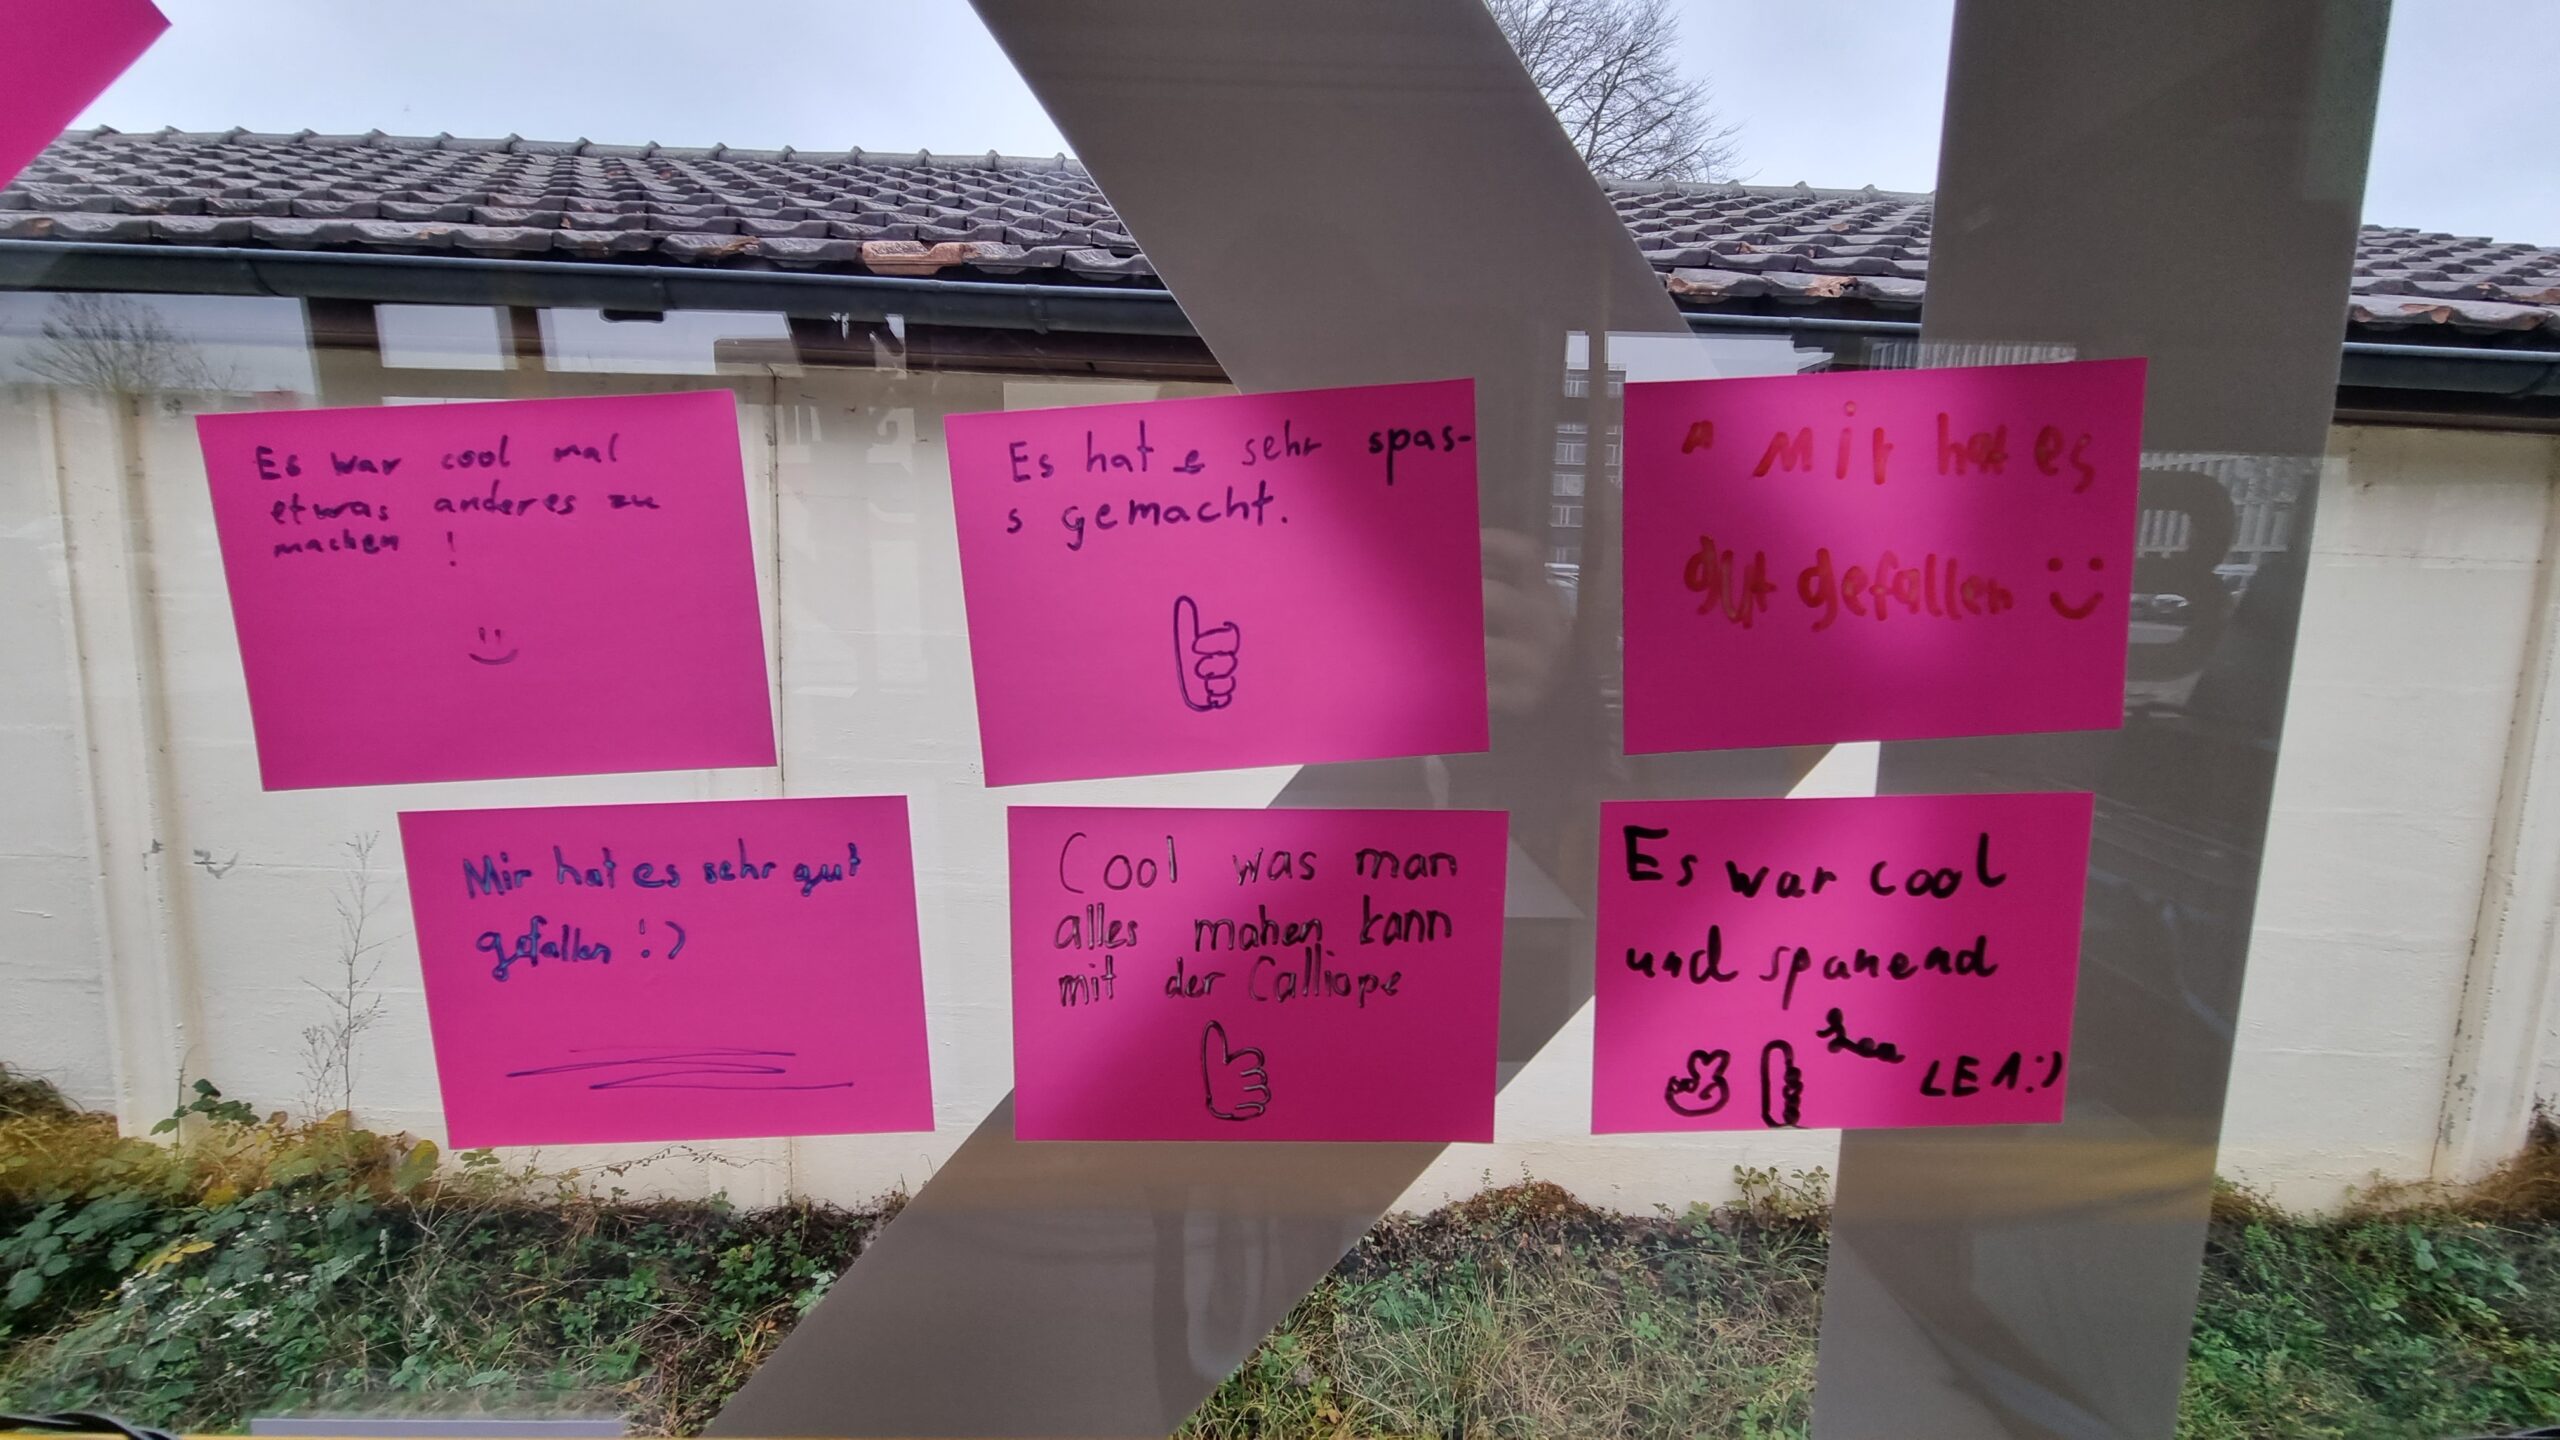 Es war cool mal
etwas anderes zu
machen !
Es hat sehr spas-
s gemacht.
Mir hat es
gut gefallen
Mir hat es sehr gut
gefallen !)
Cool was man
alles mahen kann
mit der Calliope
Es war cool
und spanend
LEA:)